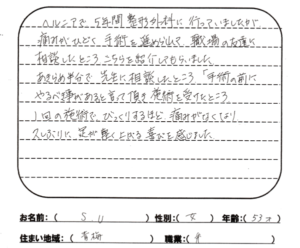 ヘルニアで 5年間 整形外科に 行っていましたが
痛みがひどく 手術を 進められて 職場の友達に
相談したところ こちらを紹介してもらいました
あきらめ半分で 先生に相談したところ「手術の前に
やるべき事がある」と言って頂き 施術を受けたところ
1回の施術で、びっくりするほど 痛みがなくなり
久しぶりに 足が軽く上がる 喜びを感じました
お名前：( S.U ) 性別：( 女 ) 年齢：( 53才 )
住まい地域：( 青梅 ) 職業：( )